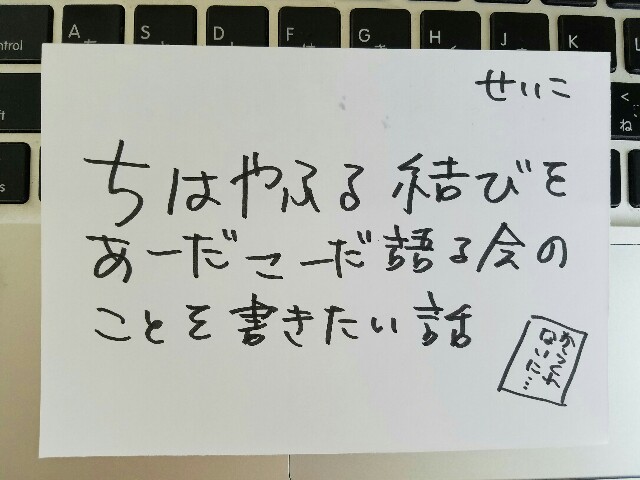 control
A
S
D
F
G
H
J
K
せいこ
ちはやふる 結びを
あーだこーだ語る会の
ことを書きたい話
ないに…